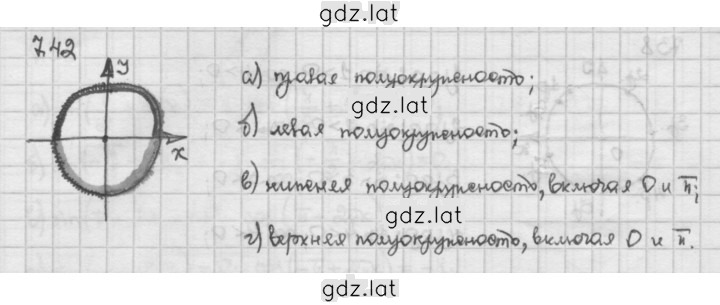 gdz.lat
7.42
y
x
а) правая полуокружность;
gdz.lat
б) левая полуокружность;
в) нижняя полуокружность, включая 0 и π;
gdz.lat
г) верхняя полуокружность, включая 0 и π.
gdz.lat